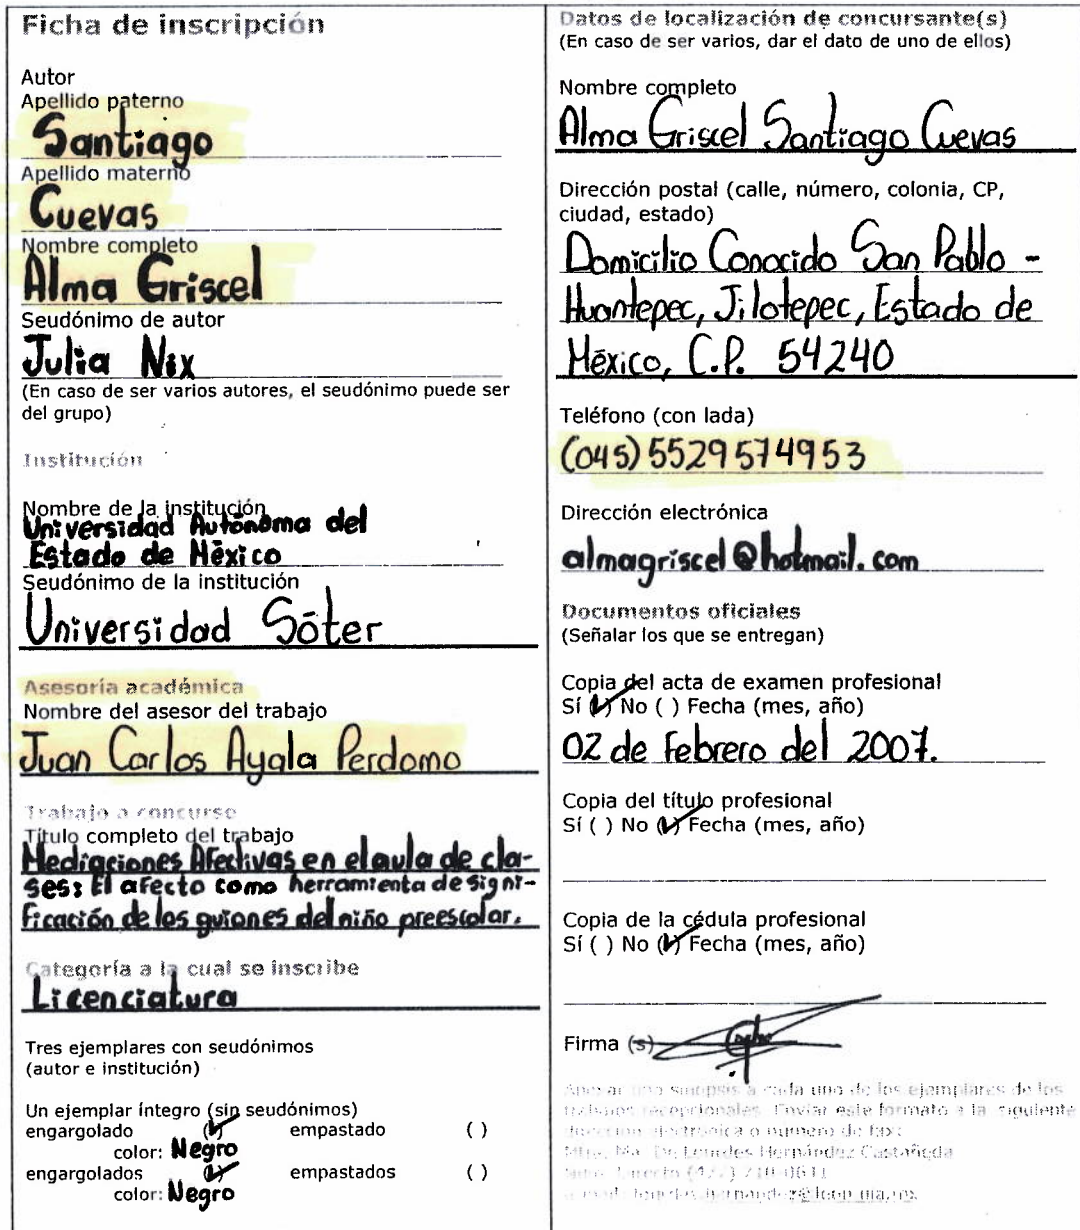 Ficha de inscripción
Autor
Apellido paterno
Santiago
Apellido materno
Cuevas
Nombre completo
Alma Griscel
Seudónimo de autor
Julia Nix
(En caso de ser varios autores, el seudónimo puede ser
del grupo)
Institución
Nombre de la institución
Universidad Autónoma del
Estado de México
Seudónimo de la institución
Universidad Sóter
Asesoría académica
Nombre del asesor del trabajo
Juan Carlos Ayala Perdomo
Trabajo a concurso
Título completo del trabajo
Mediaciones Afectivas en el aula de cla-
ses: El afecto como herramienta de signi-
ficación de los guiones del niño preescolar.
Categoría a la cual se inscribe
Licenciatura
Tres ejemplares con seudónimos
(autor e institución)
Un ejemplar íntegro (sin seudónimos)
engargolado (✓) empastado ( )
color: Negro
engargolados (✓) empastados ( )
color: Negro
Datos de localización de concursante(s)
(En caso de ser varios, dar el dato de uno de ellos)
Nombre completo
Alma Griscel Santiago Cuevas
Dirección postal (calle, número, colonia, CP,
ciudad, estado)
Domicilio Conocido San Pablo -
Huantepec, Jilotepec, Estado de
México, C.P. 54240
Teléfono (con lada)
(045) 5529574953
Dirección electrónica
almagriscel@hotmail.com
Documentos oficiales
(Señalar los que se entregan)
Copia del acta de examen profesional
Sí (✓) No ( ) Fecha (mes, año)
02 de Febrero del 2007.
Copia del título profesional
Sí ( ) No (✓) Fecha (mes, año)
Copia de la cédula profesional
Sí ( ) No (✓) Fecha (mes, año)
Firma (s)
una sinopsis a cada uno de los ejemplares de los
trabajos recepcionales. Enviar este formato a la siguiente
dirección electrónica o número de fax:
Mtra. Ma. De Lourdes Hernández Castañeda